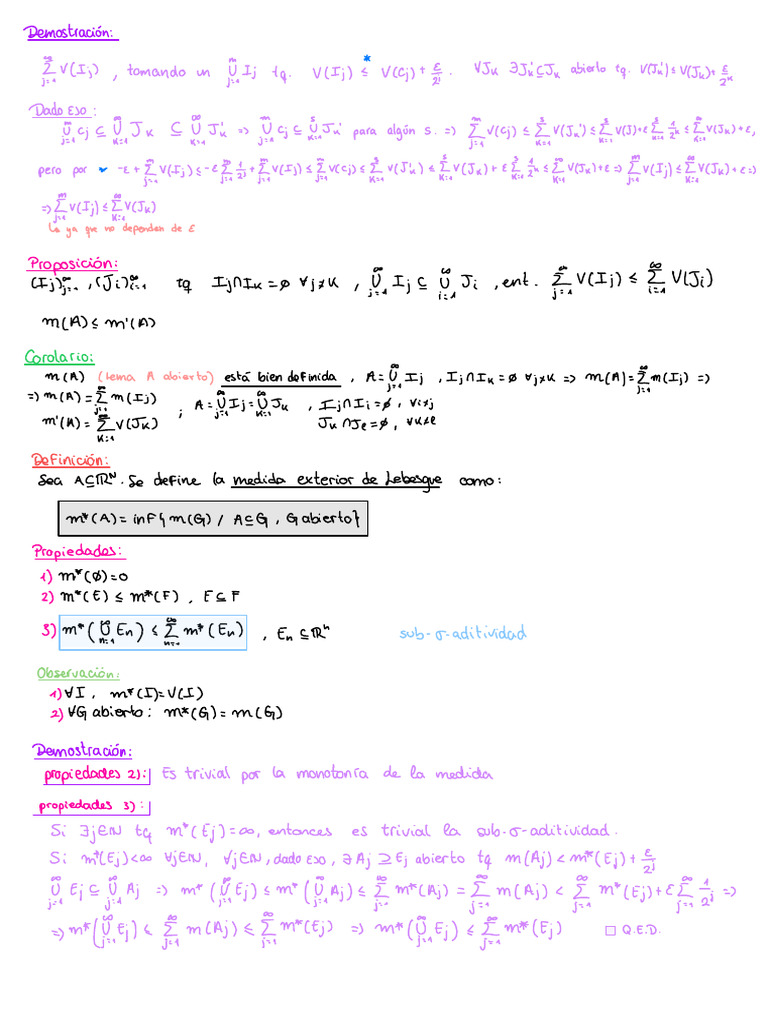 Demostración:
*
∑_{j=1}^{∞} V(I_j) , tomando un ⋃_{j=1}^{m} I_j tq. V(I_j) ≤ V(C_j) + ε/2^j . ∀J_k ∃J_k' ⊆ J_k abierto tq. V(J_k') ≤ V(J_k) + ε/2^k
Dado Eso:
⋃_{j=1}^{m} C_j ⊆ ⋃_{k=1}^{∞} J_k ⊆ ⋃_{k=1}^{∞} J_k' => ⋃_{j=1}^{m} C_j ⊆ ⋃_{k=1}^{s} J_k' para algún s. => ∑_{j=1}^{m} V(C_j) ≤ ∑_{k=1}^{s} V(J_k') ≤ ∑_{k=1}^{s} V(J) + ε ∑_{k=1}^{s} 1/2^k ≤ ∑_{k=1}^{∞} V(J_k) + ε,
pero por * -ε + ∑_{j=1}^{m} V(I_j) ≤ -ε ∑_{j=1}^{m} 1/2^j + ∑_{j=1}^{m} V(I_j) ≤ ∑_{j=1}^{m} V(C_j) ≤ ∑_{k=1}^{s} V(J_k') ≤ ∑_{k=1}^{s} V(J_k) + ε ∑_{k=1}^{s} 1/2^k ≤ ∑_{k=1}^{∞} V(J_k) + ε => ∑_{j=1}^{m} V(I_j) ≤ ∑_{k=1}^{∞} V(J_k) + ε =>
=> ∑_{j=1}^{m} V(I_j) ≤ ∑_{k=1}^{∞} V(J_k)
↳ ya que no dependen de ε
Proposición:
(I_j)_{j=1}^{∞} , (J_i)_{i=1}^{∞} tq I_j ∩ I_k = ∅ ∀j≠k , ⋃_{j=1}^{∞} I_j ⊆ ⋃_{i=1}^{∞} J_i , ent. ∑_{j=1}^{∞} V(I_j) ≤ ∑_{i=1}^{∞} V(J_i)
m(A) ≤ m'(A)
Corolario:
m(A) (tema A abierto) está bien definida , A = ⋃_{j=1}^{∞} I_j , I_j ∩ I_k = ∅ ∀j≠k => m(A) = ∑_{j=1}^{∞} m(I_j) =>
=> m(A) = ∑_{j=1}^{∞} m(I_j) ; A = ⋃_{j=1}^{∞} I_j = ⋃_{k=1}^{∞} J_k , I_j ∩ I_i = ∅, ∀i≠j
m'(A) = ∑_{k=1}^{∞} V(J_k) J_k ∩ J_e = ∅, ∀k≠e
Definición:
Sea A⊆ℝ^N. Se define la medida exterior de Lebesgue como:
m*(A) = inf{ m(G) / A⊆G , G abierto}
Propiedades:
1) m*(∅)=0
2) m*(E) ≤ m*(F) , E⊆F
3) m*(⋃_{n=1}^{∞} E_n) ≤ ∑_{n=1}^{∞} m*(E_n) , E_n ⊆ ℝ^n sub-σ-aditividad
Observación:
1) ∀I, m*(I)=V(I)
2) ∀G abierto: m*(G) = m(G)
Demostración:
propiedades 2): Es trivial por la monotonía de la medida
propiedades 3):
Si ∃j∈ℕ tq m*(E_j)=∞, entonces es trivial la sub-σ-aditividad.
Si m*(E_j)<∞ ∀j∈ℕ, ∀j∈ℕ, dado eso, ∃ A_j ⊇ E_j abierto tq m(A_j) < m*(E_j) + ε/2^j
⋃_{j=1}^{∞} E_j ⊆ ⋃_{j=1}^{∞} A_j => m*(⋃_{j=1}^{∞} E_j) ≤ m*(⋃_{j=1}^{∞} A_j) ≤ ∑_{j=1}^{∞} m*(A_j) = ∑_{j=1}^{∞} m(A_j) < ∑_{j=1}^{∞} m*(E_j) + ε ∑_{j=1}^{∞} 1/2^j =>
=> m*(⋃_{j=1}^{∞} E_j) ≤ ∑_{j=1}^{∞} m(A_j) ≤ ∑_{j=1}^{∞} m*(E_j) => m*(⋃_{j=1}^{∞} E_j) ≤ ∑_{j=1}^{∞} m*(E_j) □ Q.E.D.